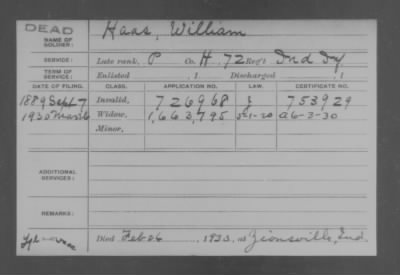 DEAD
NAME OF SOLDIER: Haas, William
SERVICE: Late rank, P Co. H, 72 Reg't Ind Inf
TERM OF SERVICE: Enlisted , 1 Discharged , 1
DATE OF FILING. CLASS. APPLICATION NO. LAW. CERTIFICATE NO.
1889 Sept 7 Invalid, 726968 J 753929
1930 Mar Widow, 1,663,795 5-1-20 A 6-3-30
Minor,
ADDITIONAL SERVICES:
REMARKS:
Died Feb 26 , 1930, at Zionsville, Ind.